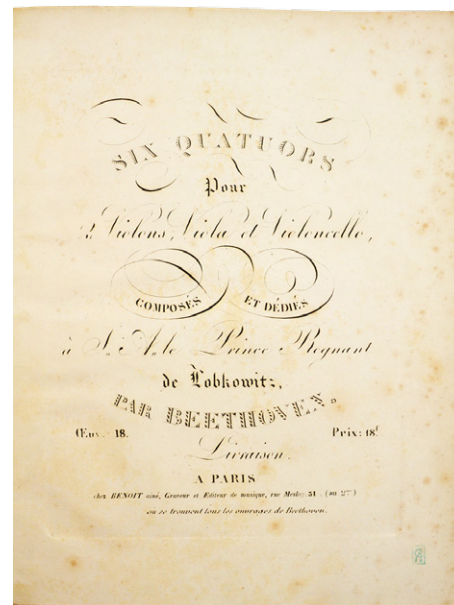 SIX QUATUORS
Pour
2 Violons, Viola et Violoncelle,
COMPOSÉS ET DÉDIÉS
à S. A. le Prince Regnant
de Lobkowitz,
PAR BEETHOVEN.
Œuv. 18. Prix: 18f
Livraison.
A PARIS
chez BENOIT ainé, Graveur et Editeur de musique, rue Meslay, 51. (au 2me)
ou se trouvent tous les ouvrages de Beethoven.